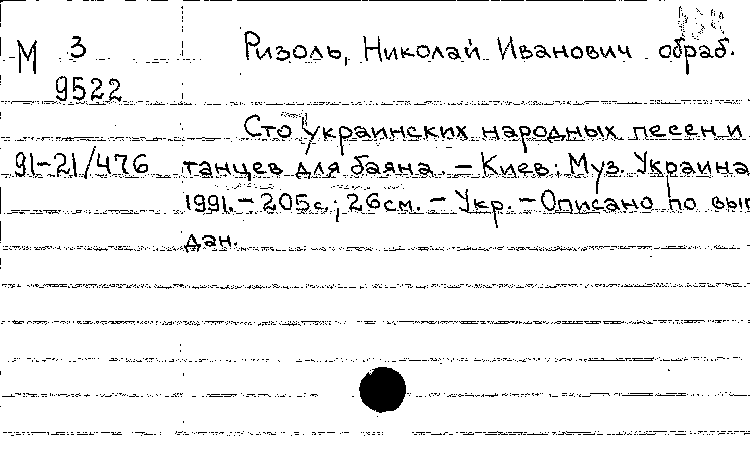 М 3 Ризоль, Николай Иванович обраб.
9522
Сто украинских народных песен и
91-21/476 танцев для баяна. – Киев: Муз. Украина
1991. – 205с.; 26см. – Укр. – Описано по вып
дан.